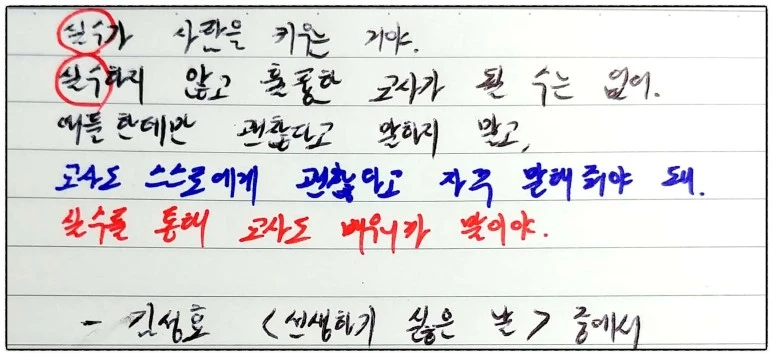 실수가 사람을 키우는 거야.
실수하지 않고 훌륭한 교사가 될 수는 없어.
애들한테만 괜찮다고 말하지 말고,
교사도 스스로에게 괜찮다고 자꾸 말해줘야 돼.
실수를 통해 교사도 배우니까 말이야.
- 김성효 <선생하기 싫은 날> 중에서